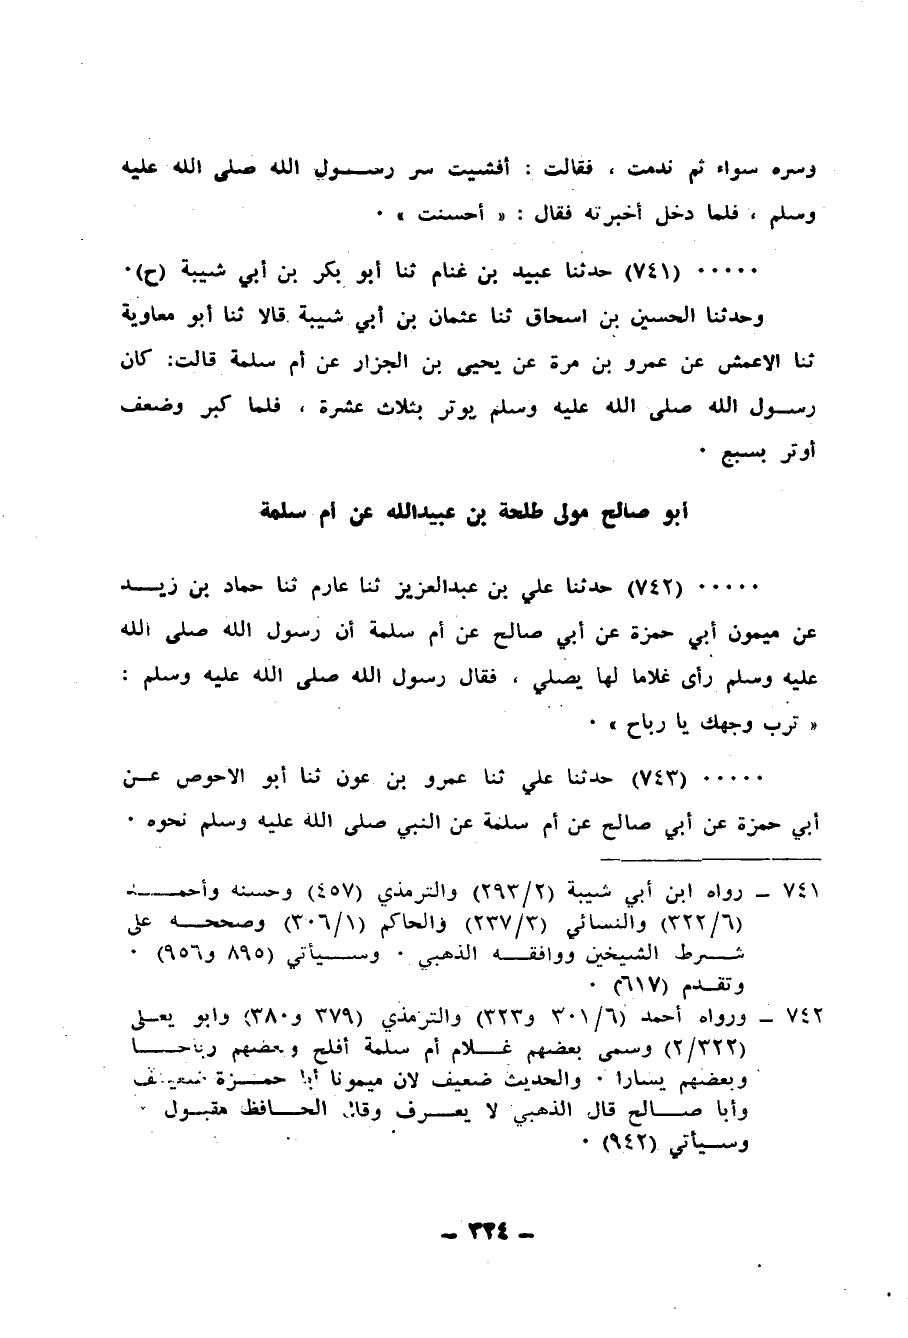 وسره سواء ثم ندمت ، فقالت : أفشيت سر رســـول الله صلى الله عليه
وسلم ، فلما دخل أخبرته فقال : « أحسنت » ٠
٠٠٠٠٠ (٧٤١) حدثنا عبيد بن غنام ثنا أبو بكر بن أبي شيبة (ح)٠
وحدثنا الحسين بن اسحاق ثنا عثمان بن أبي شيبة قالا ثنا أبو معاوية
ثنا الاعمش عن عمرو بن مرة عن يحيى بن الجزار عن أم سلمة قالت: كان
رســول الله صلى الله عليه وسلم يوتر بثلاث عشرة ، فلما كبر وضعف
أوتر بسبع ٠
أبو صالح مولى طلحة بن عبيدالله عن أم سلمة
٠٠٠٠٠ (٧٤٢) حدثنا علي بن عبدالعزيز ثنا عارم ثنا حماد بن زيـــد
عن ميمون أبي حمزة عن أبي صالح عن أم سلمة أن رسول الله صلى الله
عليه وسلم رأى غلاما لها يصلي ، فقال رسول الله صلى الله عليه وسلم :
« ترب وجهك يا رباح » ٠
٠٠٠٠٠ (٧٤٣) حدثنا علي ثنا عمرو بن عون ثنا أبو الاحوص عــن
أبي حمزة عن أبي صالح عن أم سلمة عن النبي صلى الله عليه وسلم نحوه ٠
٧٤١ ـ رواه ابن أبي شيبة (٢٩٣/٢) والترمذي (٤٥٧) وحسنه وأحمــــد
(٣٢٢/٦) والنسائي (٢٣٧/٣) والحاكم (٣٠٦/١) وصححـــه على
شـــرط الشيخين ووافقـــه الذهبي ٠ وســـيأتي (٨٩٥ و٩٥٦) ٠
وتقــدم (٦١٧) ٠
٧٤٢ ـ ورواه أحمد (٣٠١/٦ و٣٢٣) والترمذي (٣٧٩ و٣٨٠) وابو يعــلى
(٢/٣٢٢) وسمى بعضهم غـــلام أم سلمة أفلح وبعضهم رباحـــا
وبعضهم يسارا ٠ والحديث ضعيف لان ميمونا أبا حمـــزة ضعيف
وأبا صـــالح قال الذهبي لا يعـــرف وقال الحـــافظ مقبـــول ٠
وســيأتي (٩٤٢) ٠
ـ ٣٢٤ ـ